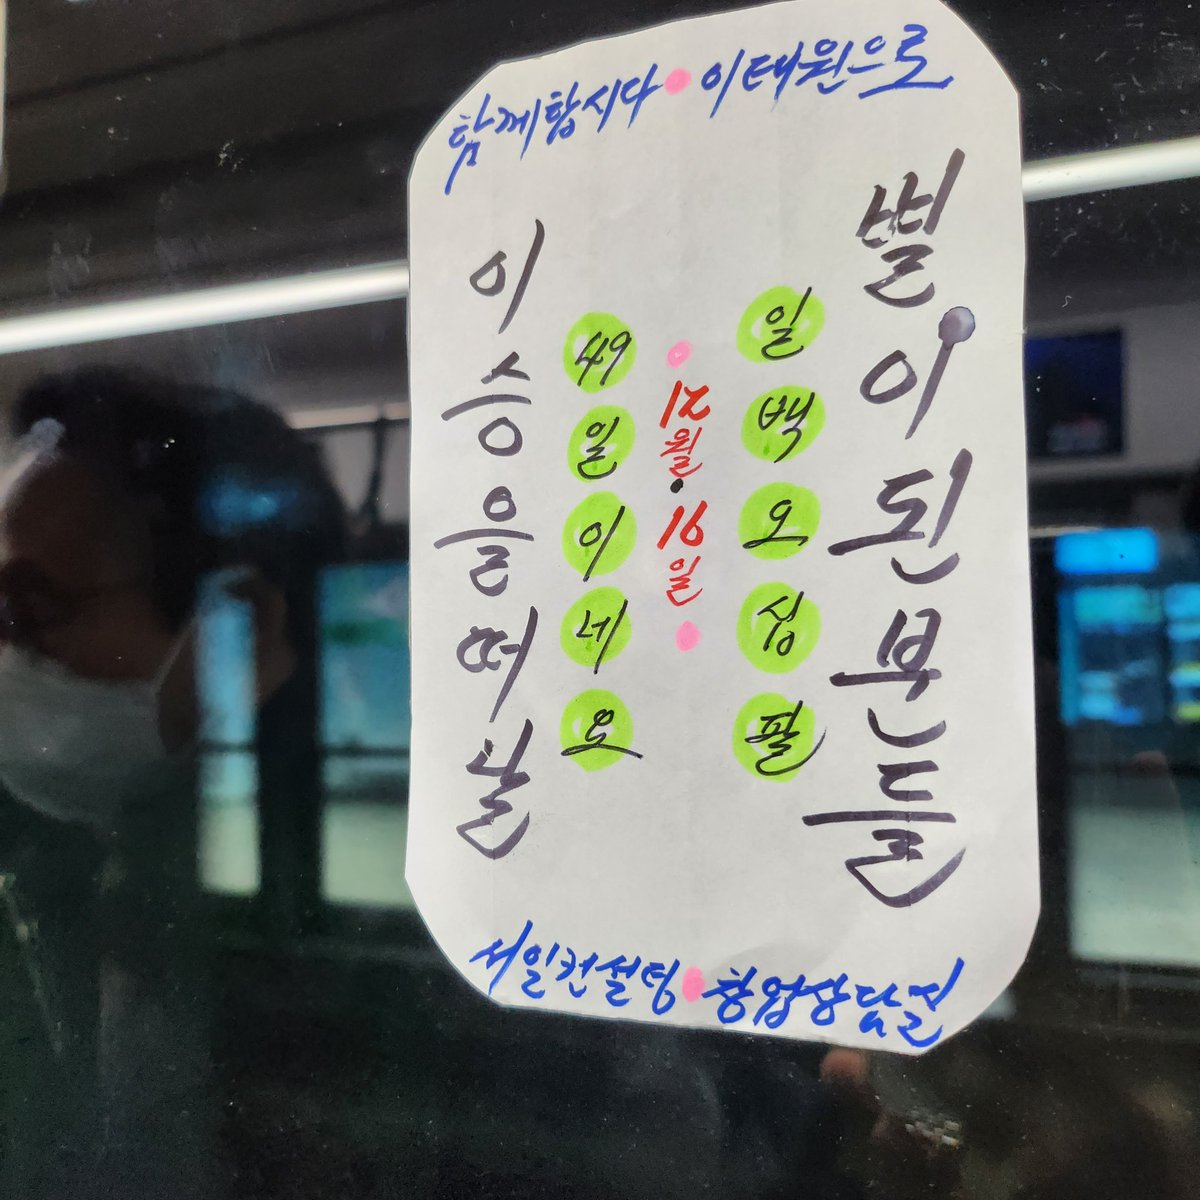 함께합시다•이태원으로
별이된분들
일백오십팔
•12월.16일•
49일이네요
이승을떠날
서일컨설팅•창업상담실